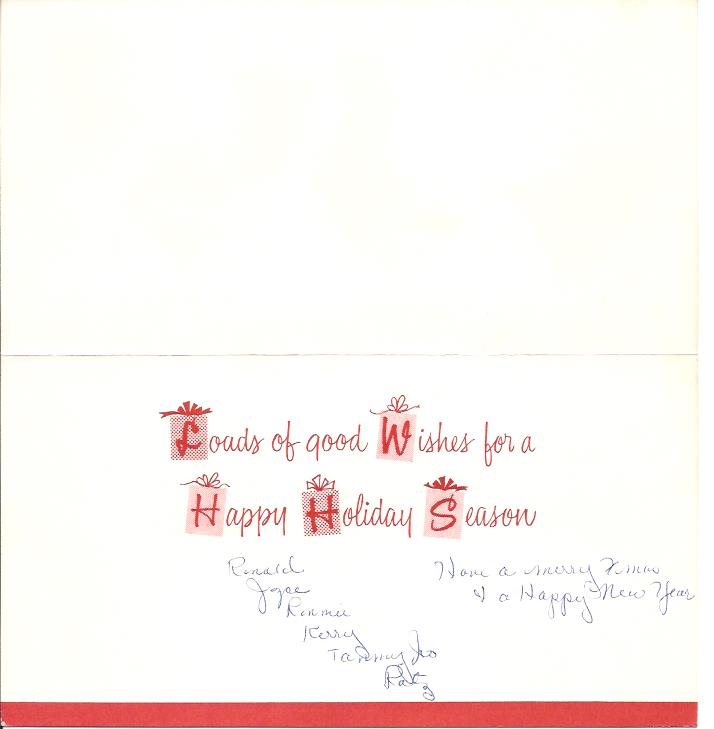 Loads of good Wishes for a
Happy Holiday Season
Ronald
Joyce
Ronnie
Kerry
Tammy Jo
Have a merry Xmas
& a Happy New Year